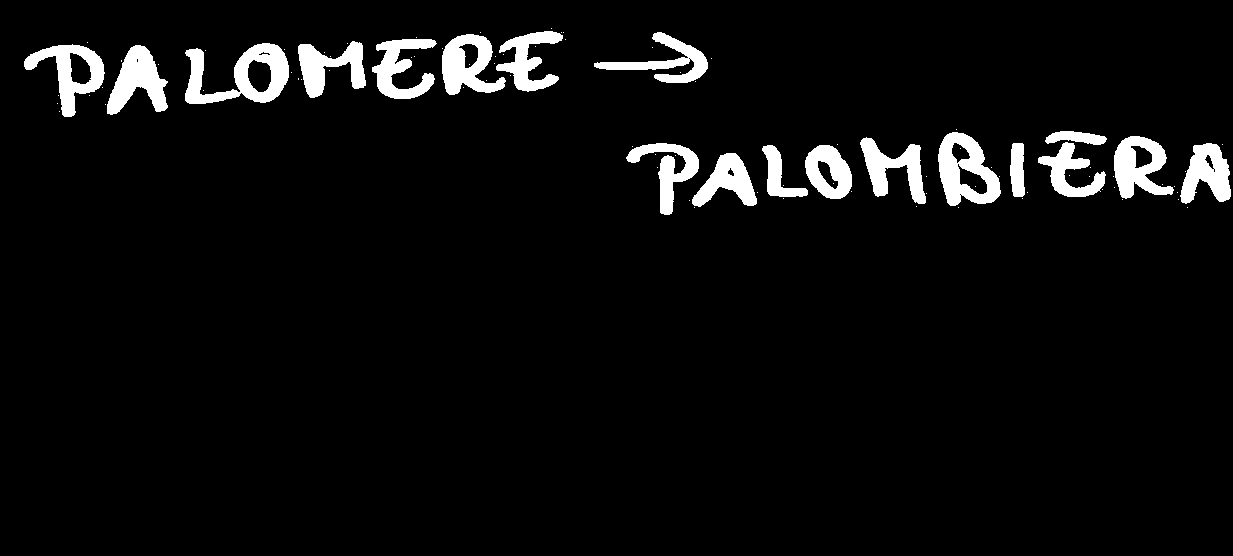 PALOMERE →
PALOMBIERA